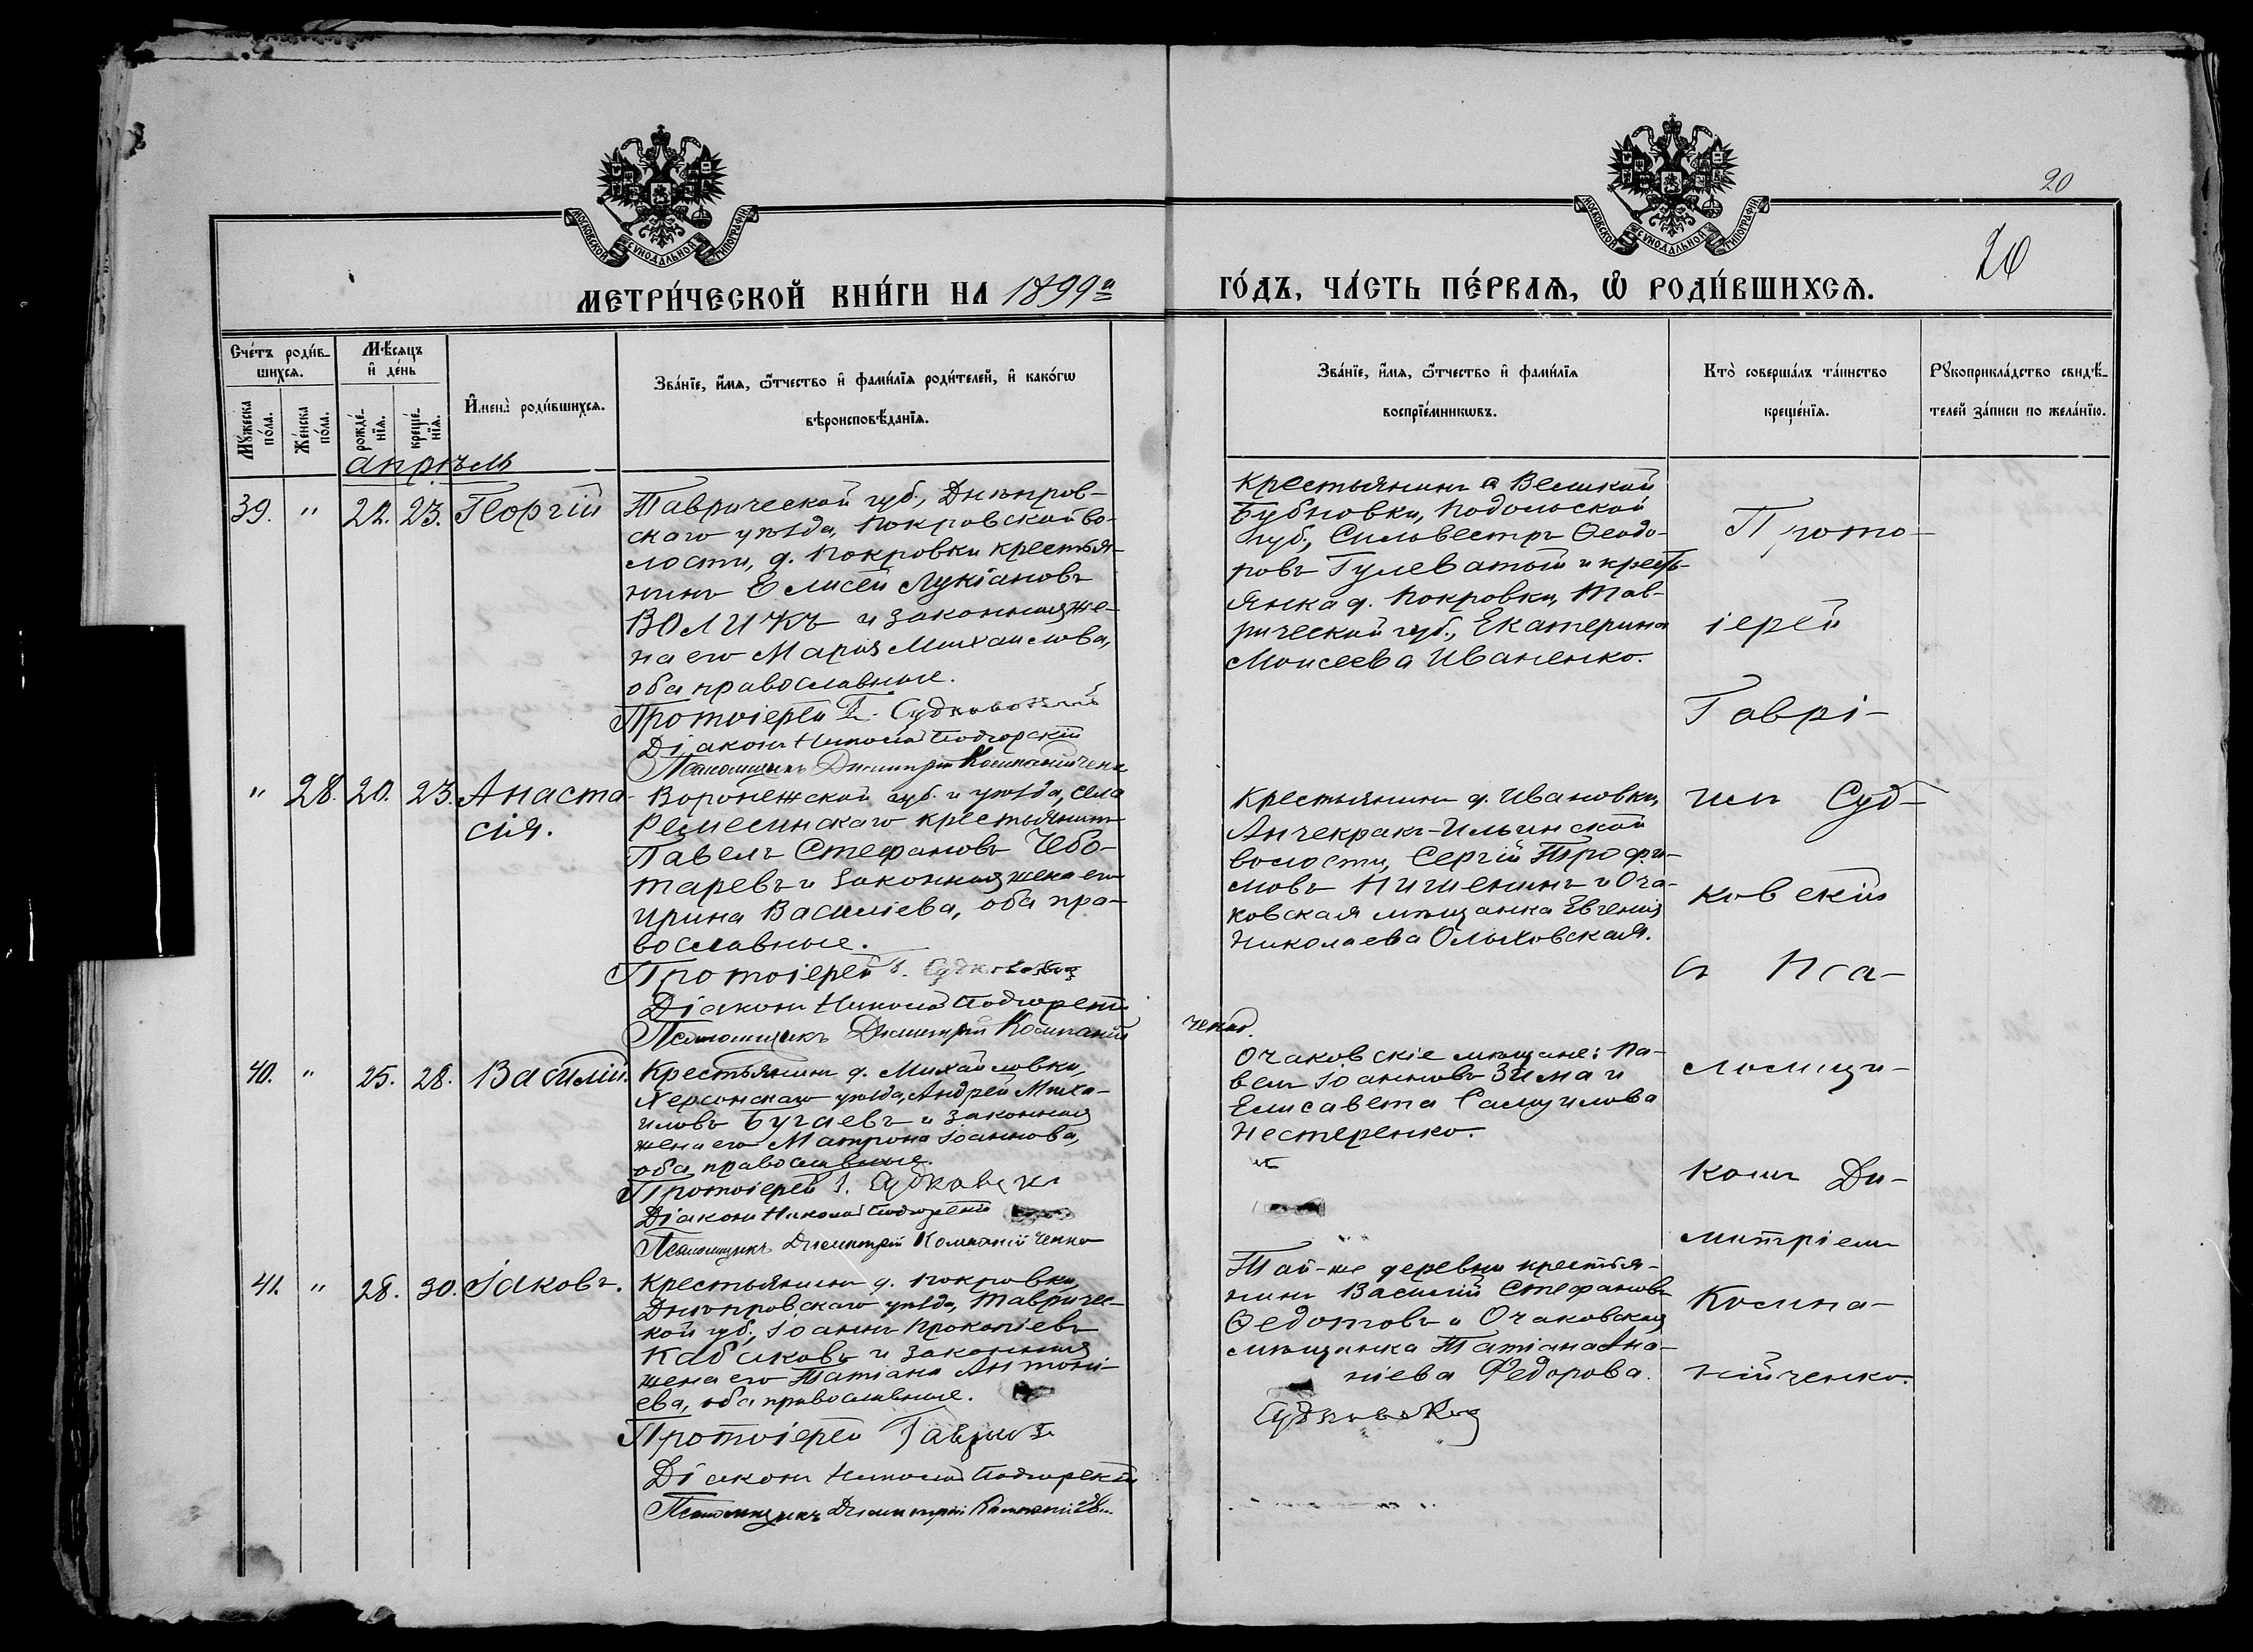 20
20
МОСКОВСКОЙ СѴНОДАЛЬНОЙ ТИПОГРАФІИ
МОСКОВСКОЙ СѴНОДАЛЬНОЙ ТИПОГРАФІИ
МЕТРИ́ЧЕСКОЙ КНИ́ГИ НА 1899й
ГО́ДЪ, ЧА́СТЬ ПЕ́РВАѦ, Ѡ҆ РОДИ́ВШИХСѦ.
Сче́тъ роди́в-
шихсѧ.
Мꙋ́жеска по́ла.
Же́нска по́ла.
Мѣ́сѧцъ
и҆ де́нь
рожде́-
нїѧ.
креще́-
нїѧ.
И҆мена̀ роди́вшихсѧ.
Зва́нїе, и҆́мѧ, ѻ҆́тчество и҆ фами́лїѧ роди́телей, и҆ како́гѡ
вѣроисповѣ́данїѧ.
Зва́нїе, и҆́мѧ, ѻ҆́тчество и҆ фами́лїѧ
воспрїе́мникѡвъ.
Кто̀ соверша́лъ та́инство
креще́нїѧ.
Рꙋкоприкла́дство свидѣ́-
телей за́писи по жела́нїю.
апрѣль
39. " 22. 23. Георгій
Таврической губ., Днѣпров-
скаго уѣзда, Покровской во-
лости, д. Покровки крестья-
нинъ Елисей Лукіановъ
Воликъ и законная же-
на его Марія Михаилова,
оба православные.
Протоіерей Г. Судковскій
Діаконъ Николай Подгорскій
Псаломщикъ Димитрій Компанійченко
Крестьянинъ с Великой
Бубновки, Подольской
губ., Сильвестръ Ѳеодо-
ровъ Гулеватый и кресть-
янка д. Покровки, Тав-
рической губ., Екатерина
Моисеева Иваненко.
" 28. 20. 23. Анаста-
сія.
Воронежской губ. и уѣзда, села
крестьянинъ
Павелъ Стефановъ Чебо-
таревъ и законная жена его
Ирина Василіева, оба пра-
вославные.
Протоіерей Г. Судковскій
Діаконъ Николай Подгорскій
Псаломщикъ Димитрій Компаній
ченко.
Крестьянинъ д. Ивановки,
Анчекракъ-Ильинской
волости, Сергій Трофи-
мовъ и Оча-
ковская мѣщанка Евгенія
Николаева Ольховская.
40. " 25. 28. Василій.
Крестьянинъ д. Михайловки,
Херсонскаго уѣзда, Андрей Миха-
иловъ Бугаевъ и законная
жена его Матрона Іоаннова,
оба православные.
Протоіерей Г. Судковскій
Діаконъ Николай Подгорскій
Псаломщикъ Димитрій Компанійченко
Очаковскіе мѣщане: Па-
велъ Іоанновъ Зима и
Елисавета Самуилова
Нестеренко.
41. " 28. 30. Іаковъ.
Крестьянинъ д. Покровки,
Днѣпровскаго уѣзда, Тавричес-
кой губ., Іоаннъ Прокопіевъ
Кабаковъ и законная
жена его Татіана Антоні-
ева, оба православные.
Протоіерей Гавріилъ
Судковскій
Діаконъ Николай Подгорскій
Псаломщикъ Димитрій Компанійченко
Той-же деревни крестья-
нинъ Василій Стефановъ
Ѳедотовъ и Очаковская
мѣщанка Татіана Ана-
ніева Федорова.
Прото-
іерей
Гаврі-
илъ Суд-
ковскій
съ Пса-
ломщи-
комъ Ди-
митріемъ
Компа-
нійченко.